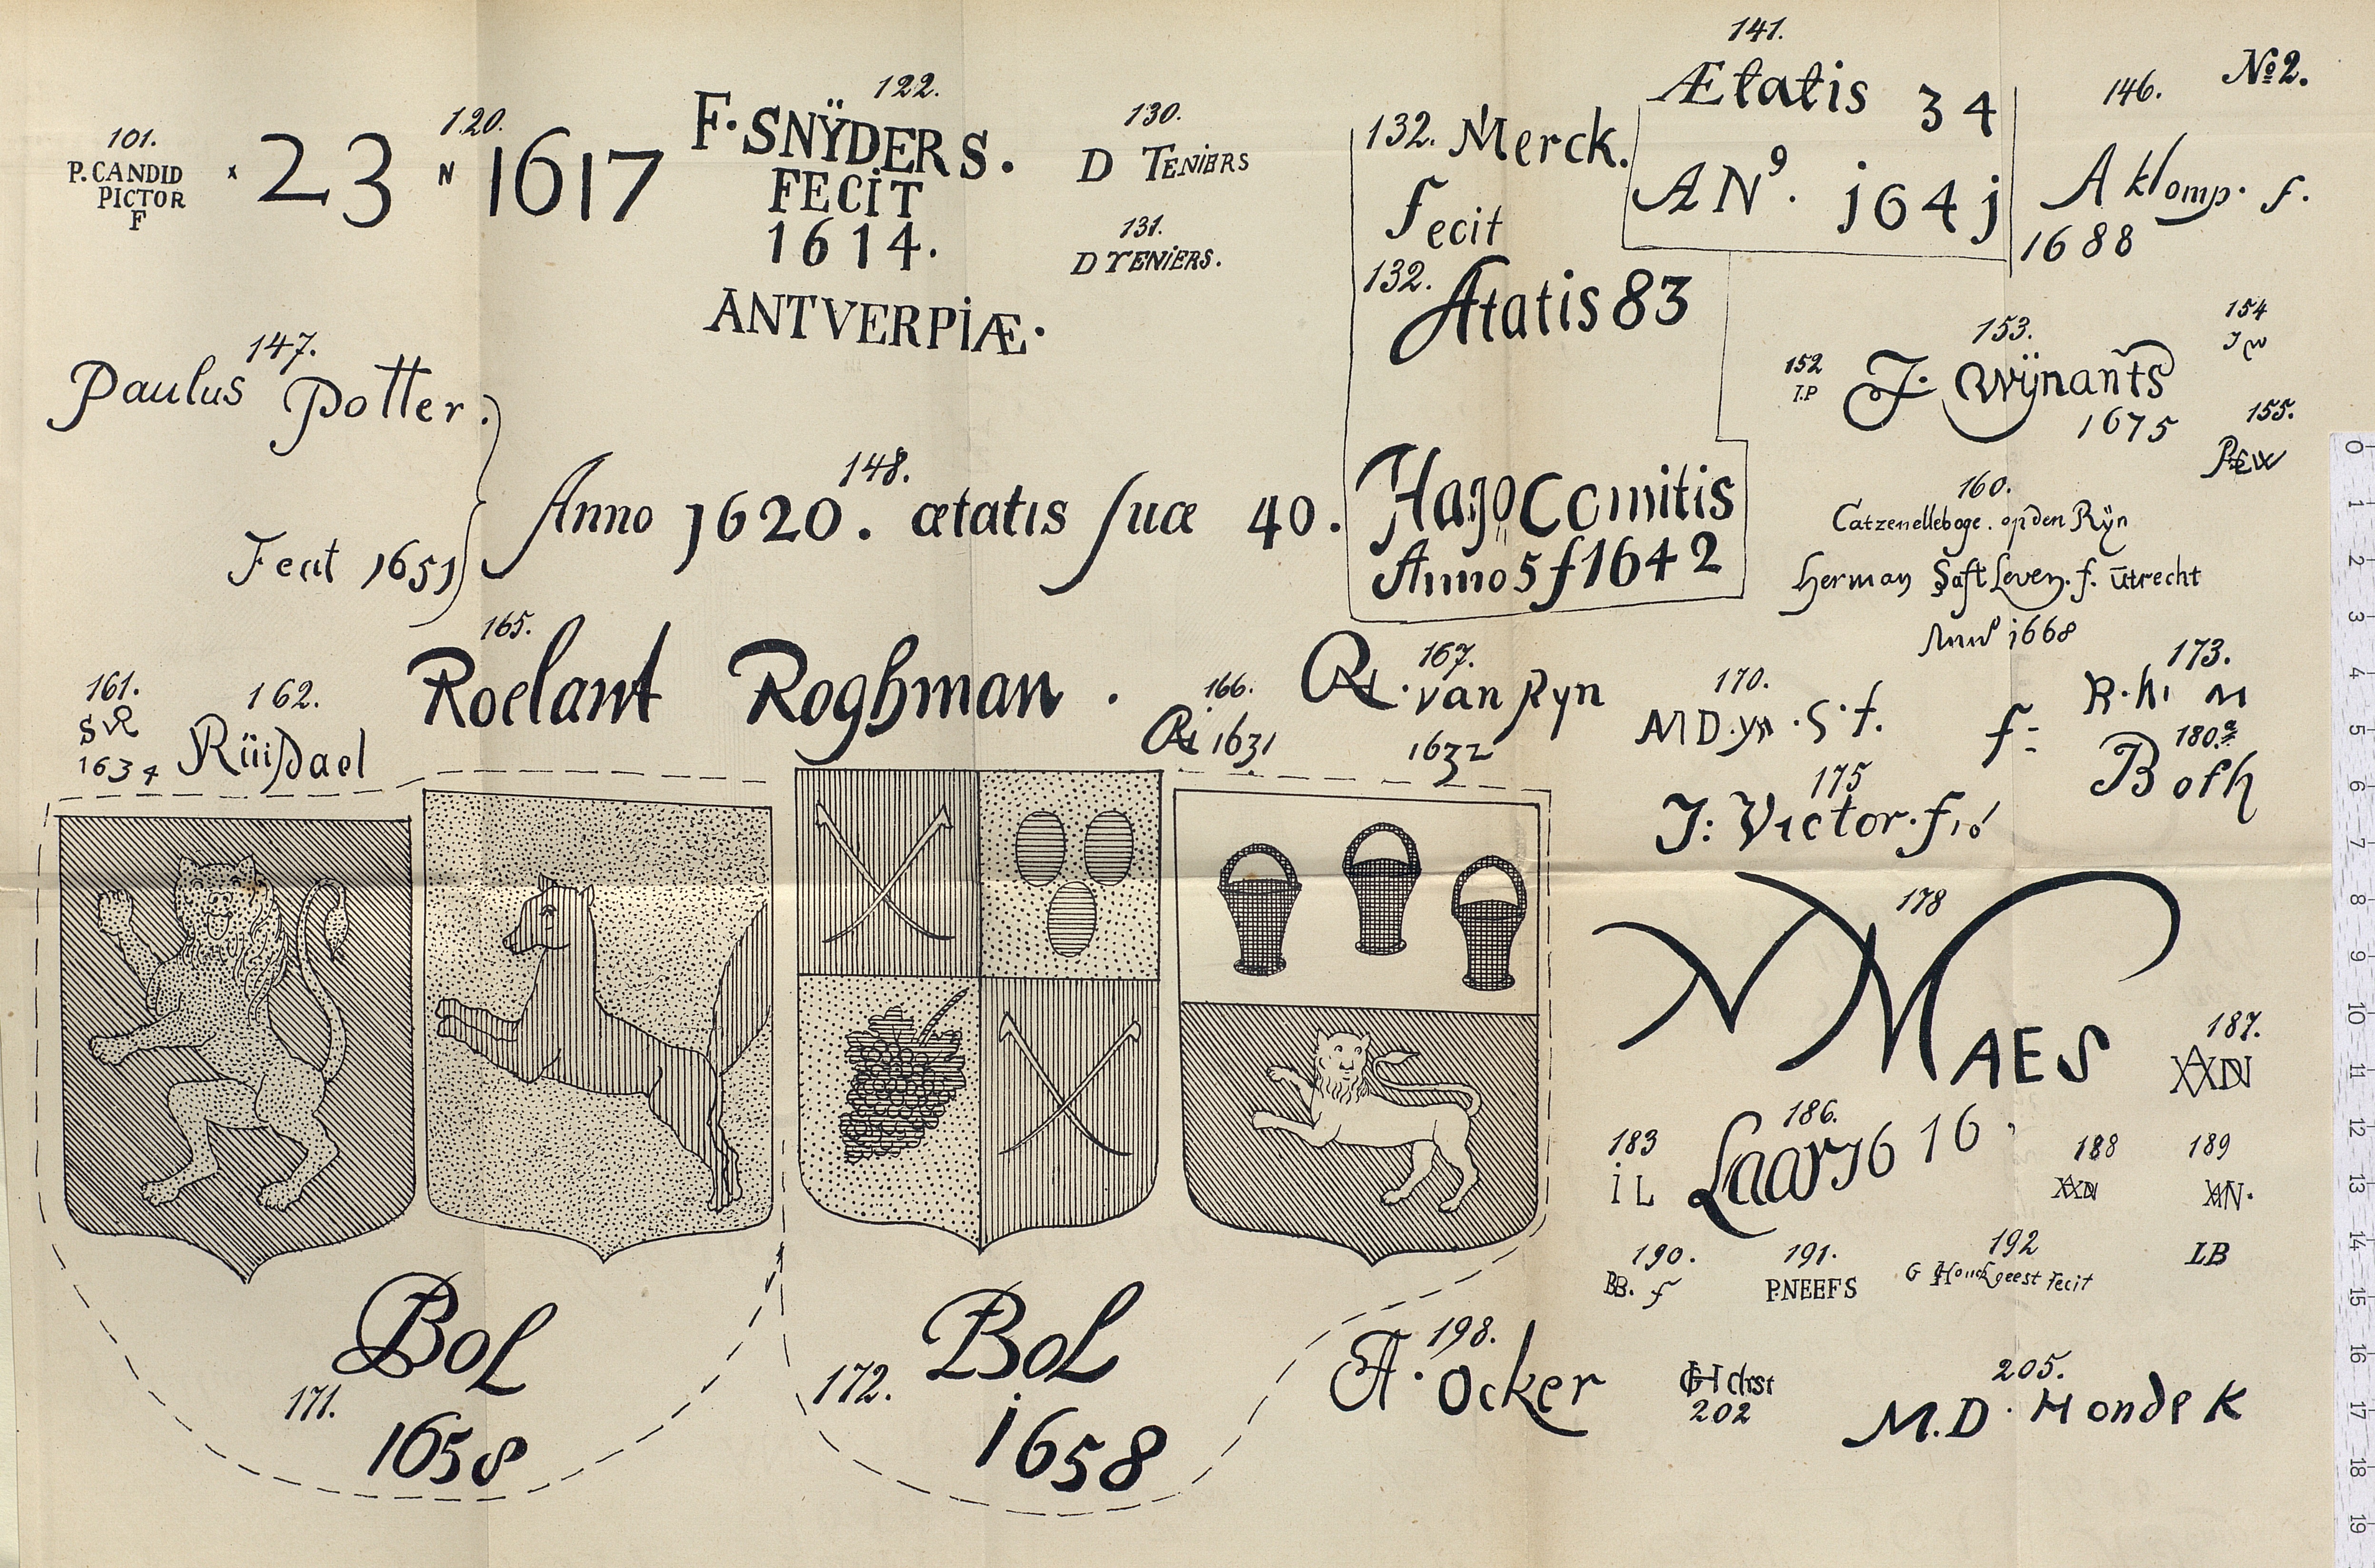 No 2.
101.
P. CANDID
PICTOR
F
120.
x 23 N 1617
122.
F. SNŸDERS.
FECİT
1614.
ANTVERPİÆ.
130.
D TENİERS
131.
D TENİERS.
132. Merck.
fecit
132.
Ætatis 83
Hago Comitis
Anno 5 f 1642
141.
Ætatis 34
ANº. j64j
146.
A klomp. f.
1688
147.
Paulus Potter.
Fecit 1651
148.
Anno 1620. ætatis suæ 40.
152
I.P
153.
J. Wÿnants
1675
154
JW
155.
160.
Catzenelleboge. op den Rÿn
Herman Saft Leven. f. utrecht
Anno 1668
161.
SVR
1634
162.
Rüisdael
165.
Roelant Roghman.
166.
1631
167.
van Ryn
1632
170.
MD.yn .S. f.
173.
R. h. n
f:
175
J: Victor. f,
180.a
Both
178
N MAES
171.
BOL
1658
172.
BOL
1658
183
İ L
186.
Laar 1616
187.
188
189
N.
190.
BB. f
191.
P.NEEFS
192
G Houckgeest fecit
LB
198.
A. Ocker
GH drst
202
205.
M.D. Hondek
0
1
2
3
4
5
6
7
8
9
10
11
12
13
14
15
16
17
18
19